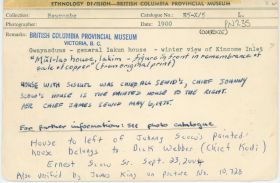 ETHNOLOGY DIVISION—BRITISH COLUMBIA PROVINCIAL MUSEUM
Catalogue No.:
Date: 1900
PN235
BRITISH COLUMBIA PROVINCIAL MUSEUM
VICTORIA, B. C.
Gwayasdums - general lakun house - winter view of Kincome Inlet
house, lakim - figure in front in remembrance of
sale of copper" (from original print)
HOUSE WITH SCROLL WAS CHIEF ALL SEWID'S, CHIEF JOHNNY
SCOW'S HOUSE IS THE PAINTED HOUSE TO THE RIGHT.
PER CHIEF JAMES SEWID MAY 6, 1975.
For further information: see photo catalogue
House to left of Johnny Scow's painted
house belongs to Dick Webber (Chief Kodi)
Ernest Scow Sr. Sept. 23, 2004
Also verified by James King on Picture No. 10,728